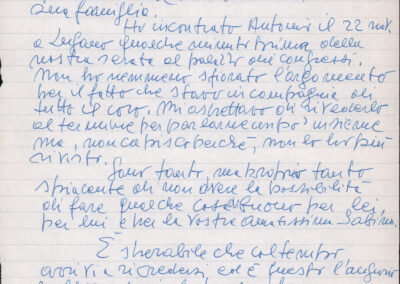 sua famiglia.
Ho incontrato Antonio il 22 u.s.
a Lugano qualche minuto prima della
nostra serata al palazzo dei congressi.
Non ho nemmeno sfiorato l'argomento
per il fatto che stavo in compagnia di
tutto il coro. Mi aspettavo di rivederlo
al termine per parlarne un po' insieme
ma, non capisco perché, non l'ho più
rivisto.
Sono tanto, ma proprio tanto
spiacente di non avere la possibilità
di fare qualche cosa di buono per lei
per lui e per la vostra amatissima Sabina.
È sperabile che col tempo
arrivi a ricredersi, ed è questo l'augurio